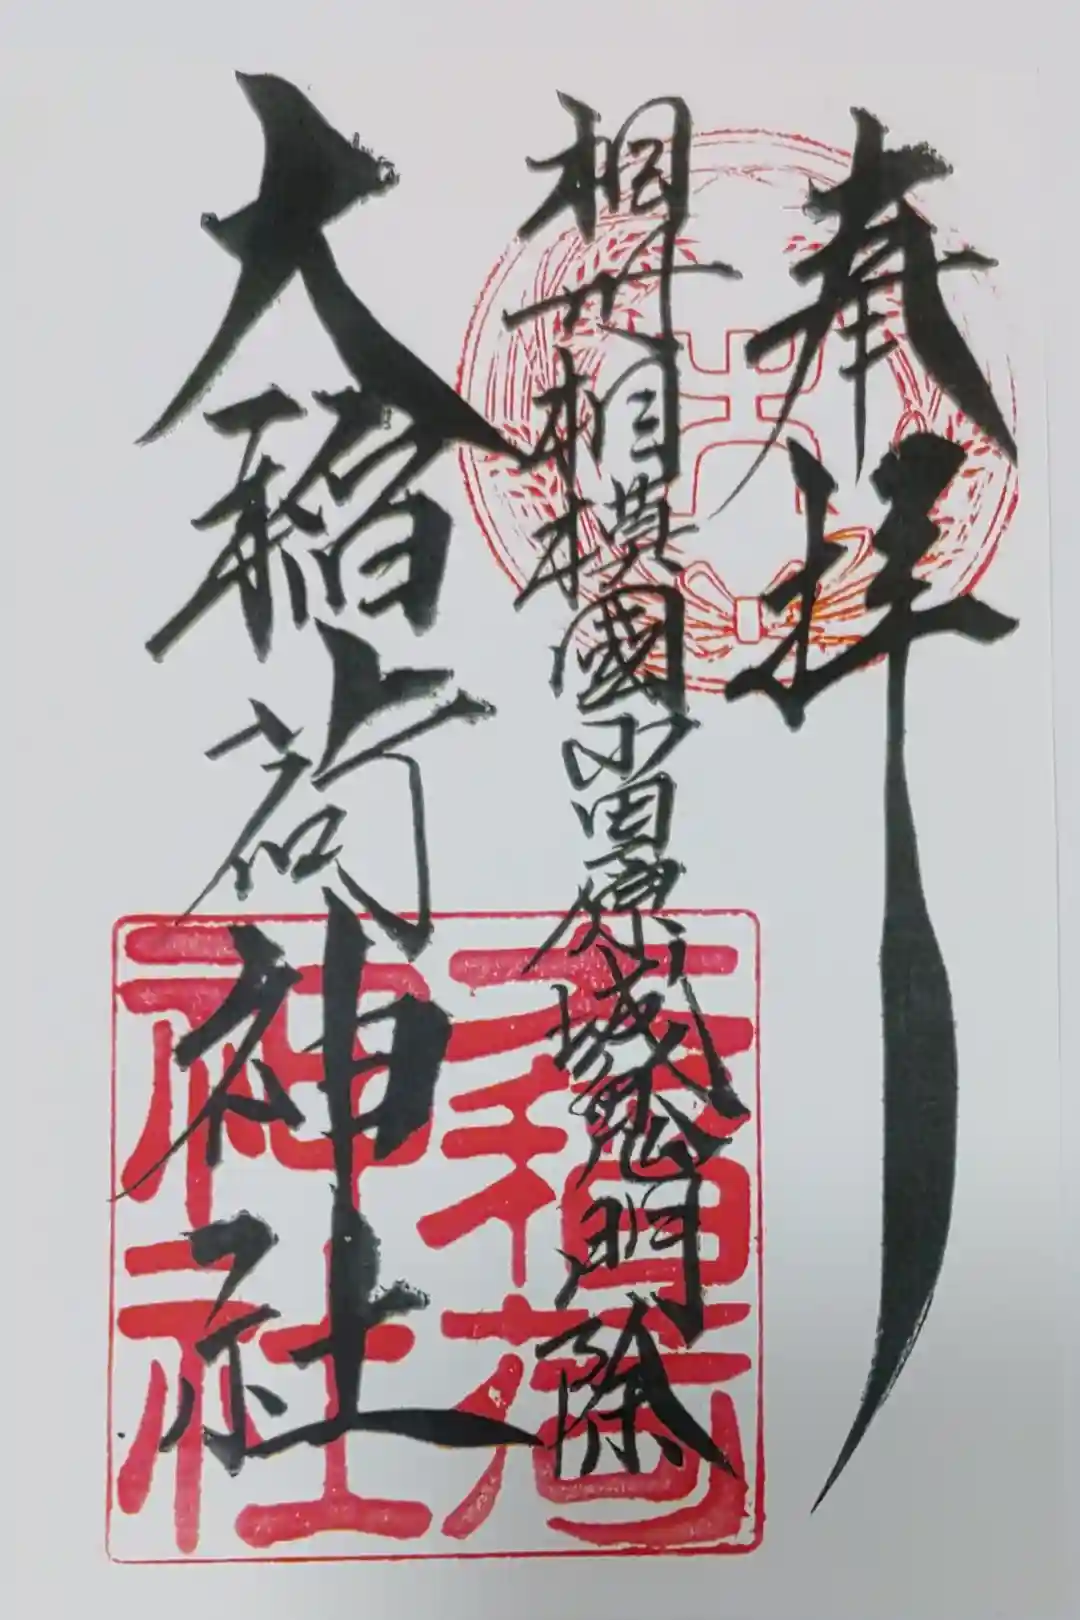 奉拝
相模國小田原城鬼門除
大稲荷神社
大稲荷
神社